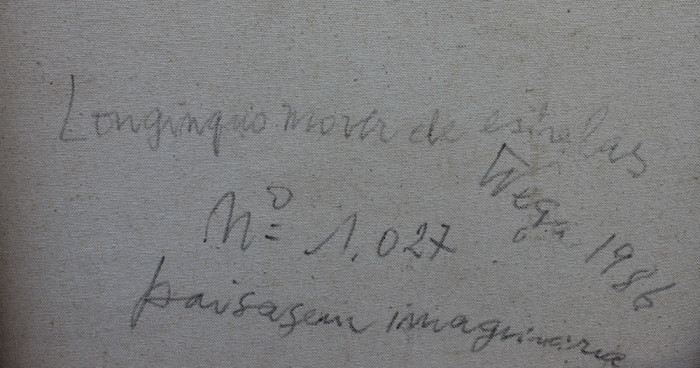 Longinquo mover de estrelas
Wega 1986
Nº 1.027
paisagem imaginária